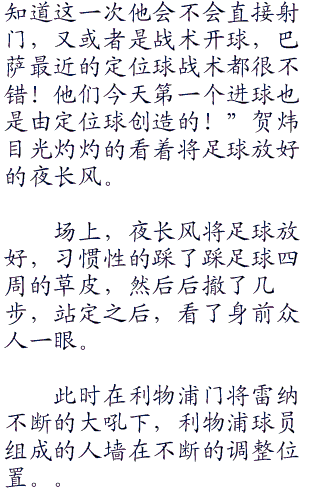 知道这一次他会不会直接射
门，又或者是战术开球，巴
萨最近的定位球战术都很不
错！他们今天第一个进球也
是由定位球创造的！”贺炜
目光灼灼的看着将足球放好
的夜长风。
场上，夜长风将足球放
好，习惯性的踩了踩足球四
周的草皮，然后后撤了几
步，站定之后，看了身前众
人一眼。
此时在利物浦门将雷纳
不断的大吼下，利物浦球员
组成的人墙在不断的调整位
置。。